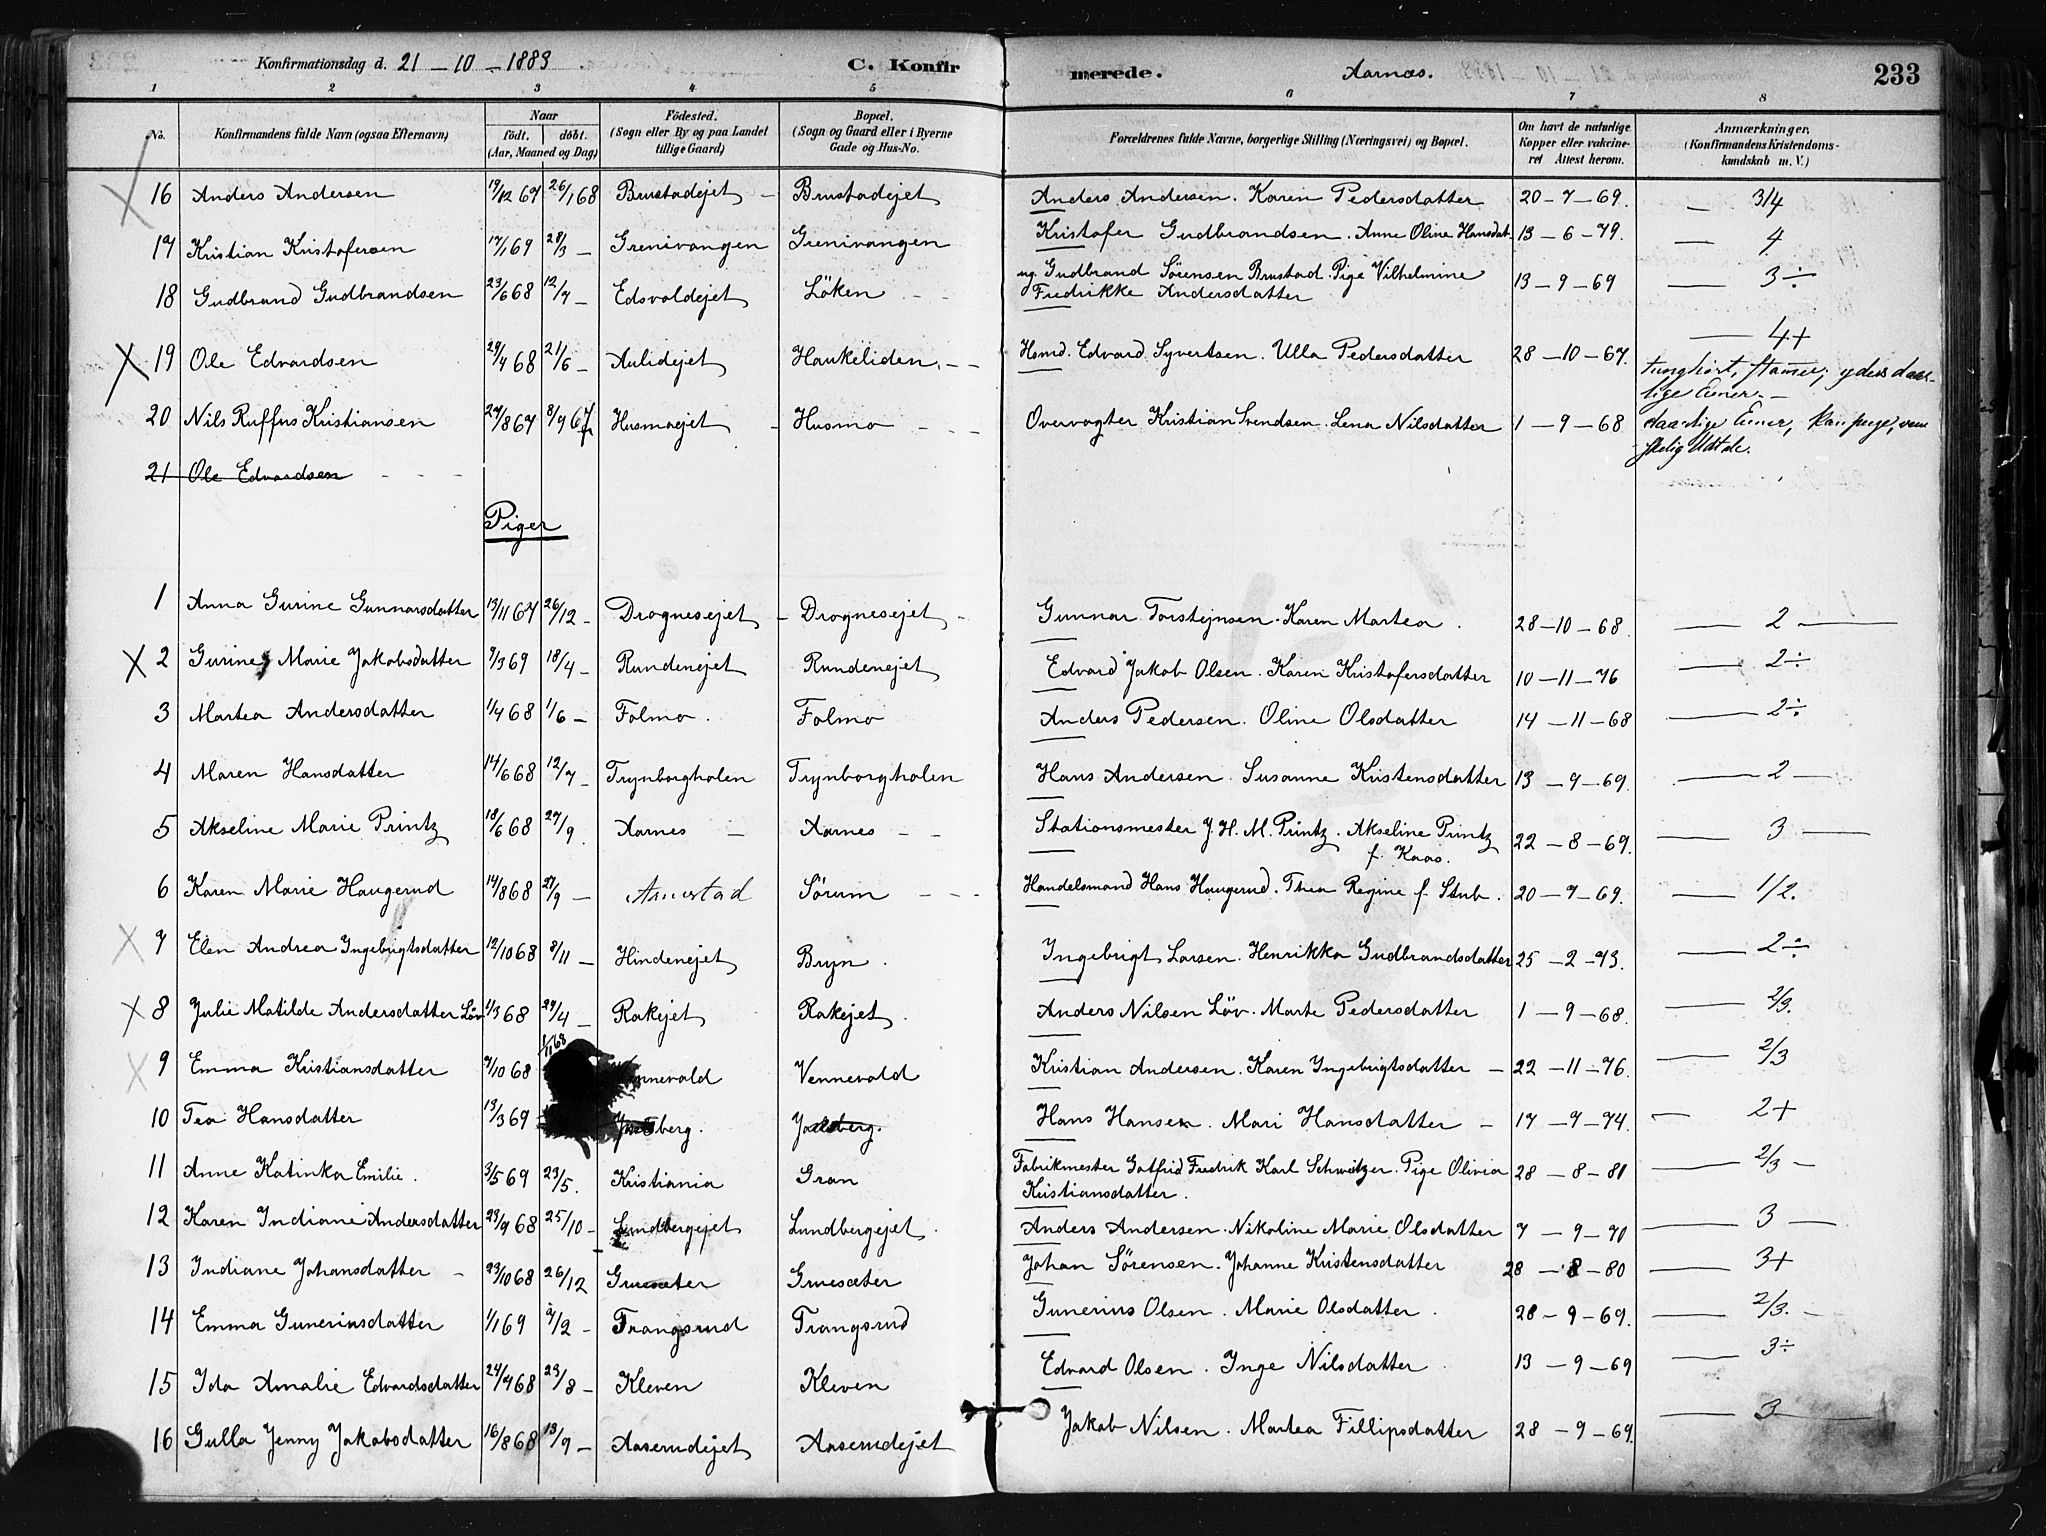 Konfirmationsdag d. 21 – 10 – 1883 C. Konfirmerede. Aarnæs. 233
1 2 3 4 5 6 7 8
No. Konfirmandens fulde Navn (ogsaa Efternavn) Naar født. døbt. (Aar, Maaned og Dag) Fødested. (Sogn eller By og paa Landet tillige Gaard) Bopæl. (Sogn og Gaard eller i Byerne Gade og Hus-No. Forældrenes fulde Navne, borgerlige Stilling (Næringsvei) og Bopæl. Om havt de naturlige Kopper eller vaccineret Attest herom. Anmærkninger, (Konfirmandens Kristendomskundskab m. V.)
16 Anders Andersen 19/12 67 26/1 68 Brustadejet – Brustadejet Anders Andersen. Karen Pedersdatter 20–7–69. — 3/4
17 Kristian Kristofersen 17/1 69 28/3 – Grenivangen Grenivangen Kristofer Gudbrandsen. Anne Oline Hansdat. 13–6–79. — 4
18 Gudbrand Gudbrandsen 23/6 68 12/7 – Edsvoldejet Löken ug. Gudbrand Sörensen Brustad. Pige Vilhelmine 13–9–69 — 3÷
Fredrikke Andersdatter
19 Ole Edvardsen 29/4 68 21/6 – Aulidejet Haukeliden Hsmd. Edvard Syvertsen. Ulla Pedersdatter 28–10–67. — 4+
tunghört, stammer, yderst daarlige Evner. –
20 Nils Ruffus Kristiansen 27/8 67 8/9 67 Husmoejet Husmo Overvogter Kristian Svendsen. Lena Nilsdatter 1–9–68 daarlige Evner,
21 Ole Edvardsen
Piger
1 Anna Gurine Gunnarsdatter 13/11 67 26/12 – Drognesejet – Drognesejet Gunnar Torstejnsen. Karen Martea. 28–10–68. — 2 —
2 Gurine Marie Jakobsdatter 9/3 69 18/4 – Rundenejet Rundenejet Edvard Jakob Olsen. Karen Kristofersdatter 10–11–76 — 2÷
3 Martea Andersdatter 1/4 68 1/6 – Folmo. Folmo Anders Pedersen. Oline Olsdatter 14–11–68 — 2÷
4 Maren Hansdatter 14/6 68 12/7 – Trynborgholen Trynborgholen Hans Andersen. Susanne Kristensdatter 13–9–69. — 2 —
5 Akseline Marie Printz 18/6 68 27/9. Aarnes – Aarnes – – Stationsmester J. H. M. Printz. Akseline Printz f. Kaas. 22–8–69. — 3 —
6 Karen Marie Haugerud 14/8 68 27/9 – Arnestad Sörum Handelsmand Hans Haugerud. Thea Regine f. Stub. 20–7–69. — 1/2.
7 Elen Andrea Ingebrigtsdatter 12/10 68 8/11 – Hindenejet Bryn. Ingebrigt Larsen. Henrikka Gudbrandsdatter 25–2–73. — 2÷
8 Julie Matilde Andersdatter Löv 1/3 68 29/4 – Rakejet Rakejet. Anders Nilsen Löv. Marte Pedersdatter 1–9–68. — 2/3.
9 Emma Kristiansdatter 9/10 68 Vennevold Vennevold Kristian Andersen. Karen Ingebrigtsdatter – 22–11–76. — 2/3
10 Tea Hansdatter 13/3 69 Hans Hansen. Mari Hansdatter – 17–9–74. — 2+
11 Anne Katinka Emilie. 3/5 69 23/5. Kristiania Gran Fabrikmester Gotfrid Fredrik Karl Schwitzer. Pige Olivia 28–8–81 — 2/3 –
Kristiansdatter.
12 Karen Indiane Andersdatter 23/9 68 25/10 – Lundbergejet Lundbergejet. Anders Andersen. Nikoline Marie Olsdatter 7–9–70 — 3 —
13 Indiane Johansdatter – 23/10 68 26/12 Gruesæter Gruesæter Johan Sörensen. Johanne Kristensdatter 28–8–80 — 3+
14 Emma Guneriusdatter 1/1 69 2/2 – Trangsrud Trangsrud Gunerius Olsen. Marie Olsdatter. 28–9–69. — 2/3. –
15 Ida Amalie Edvardsdatter 24/7 68 23/8 – Kleven Kleven Edvard Olsen. Inge Nilsdatter. 13–9–69 — 3÷
16 Gulla Jenny Jakobsdatter 16/8 68 13/9 – Aaserudejet Aaserudejet Jakob Nilsen. Martea Fillipsdatter 28–9–69. — 3 —